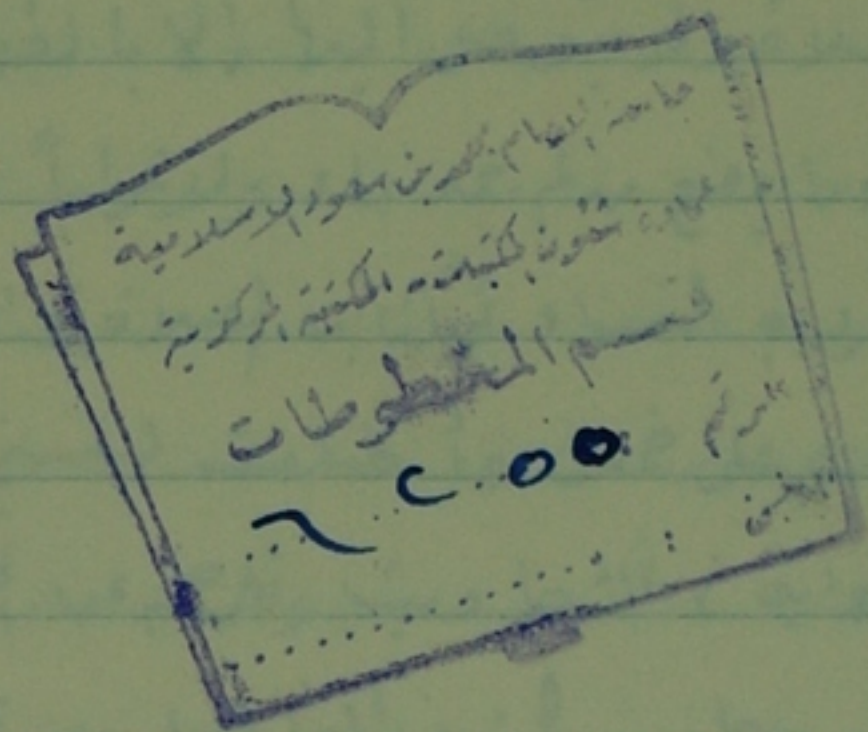 جامعة الإمام محمد بن سعود الإسلامية
عمادة شئون المكتبات - المكتبة المركزية
قسم المخطوطات
الرقم : ٦٢٥٥
الفن :